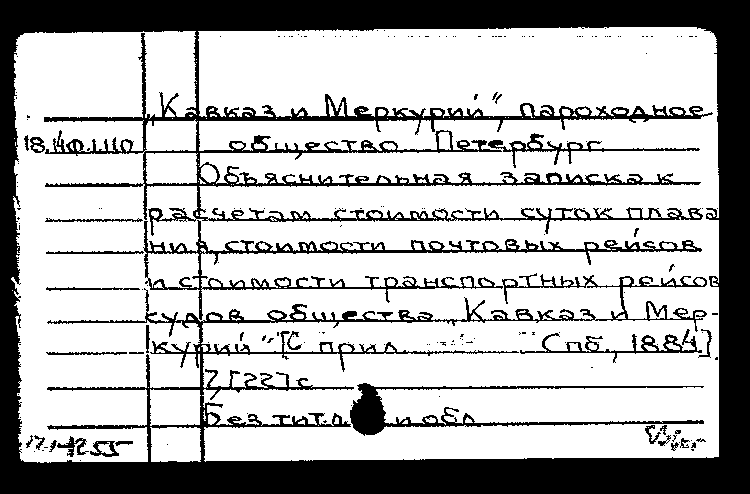 „Кавказ и Меркурий", пароходное
общество. Петербург.
Объяснительная записка к
расчетам стоимости суток плава
ния, стоимости почтовых рейсов
и стоимости транспортных рейсов
судов общества „Кавказ и Мер-
курий" [С прил. Спб., 1884].
7, [22] с
Без тит. л. и обл